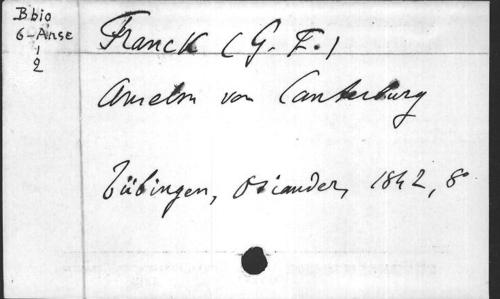 Bbio
6-Anse
1
2
Franck (G. F.)
Anselm von Canterburg
Tübingen, Osiander, 1842, 8°